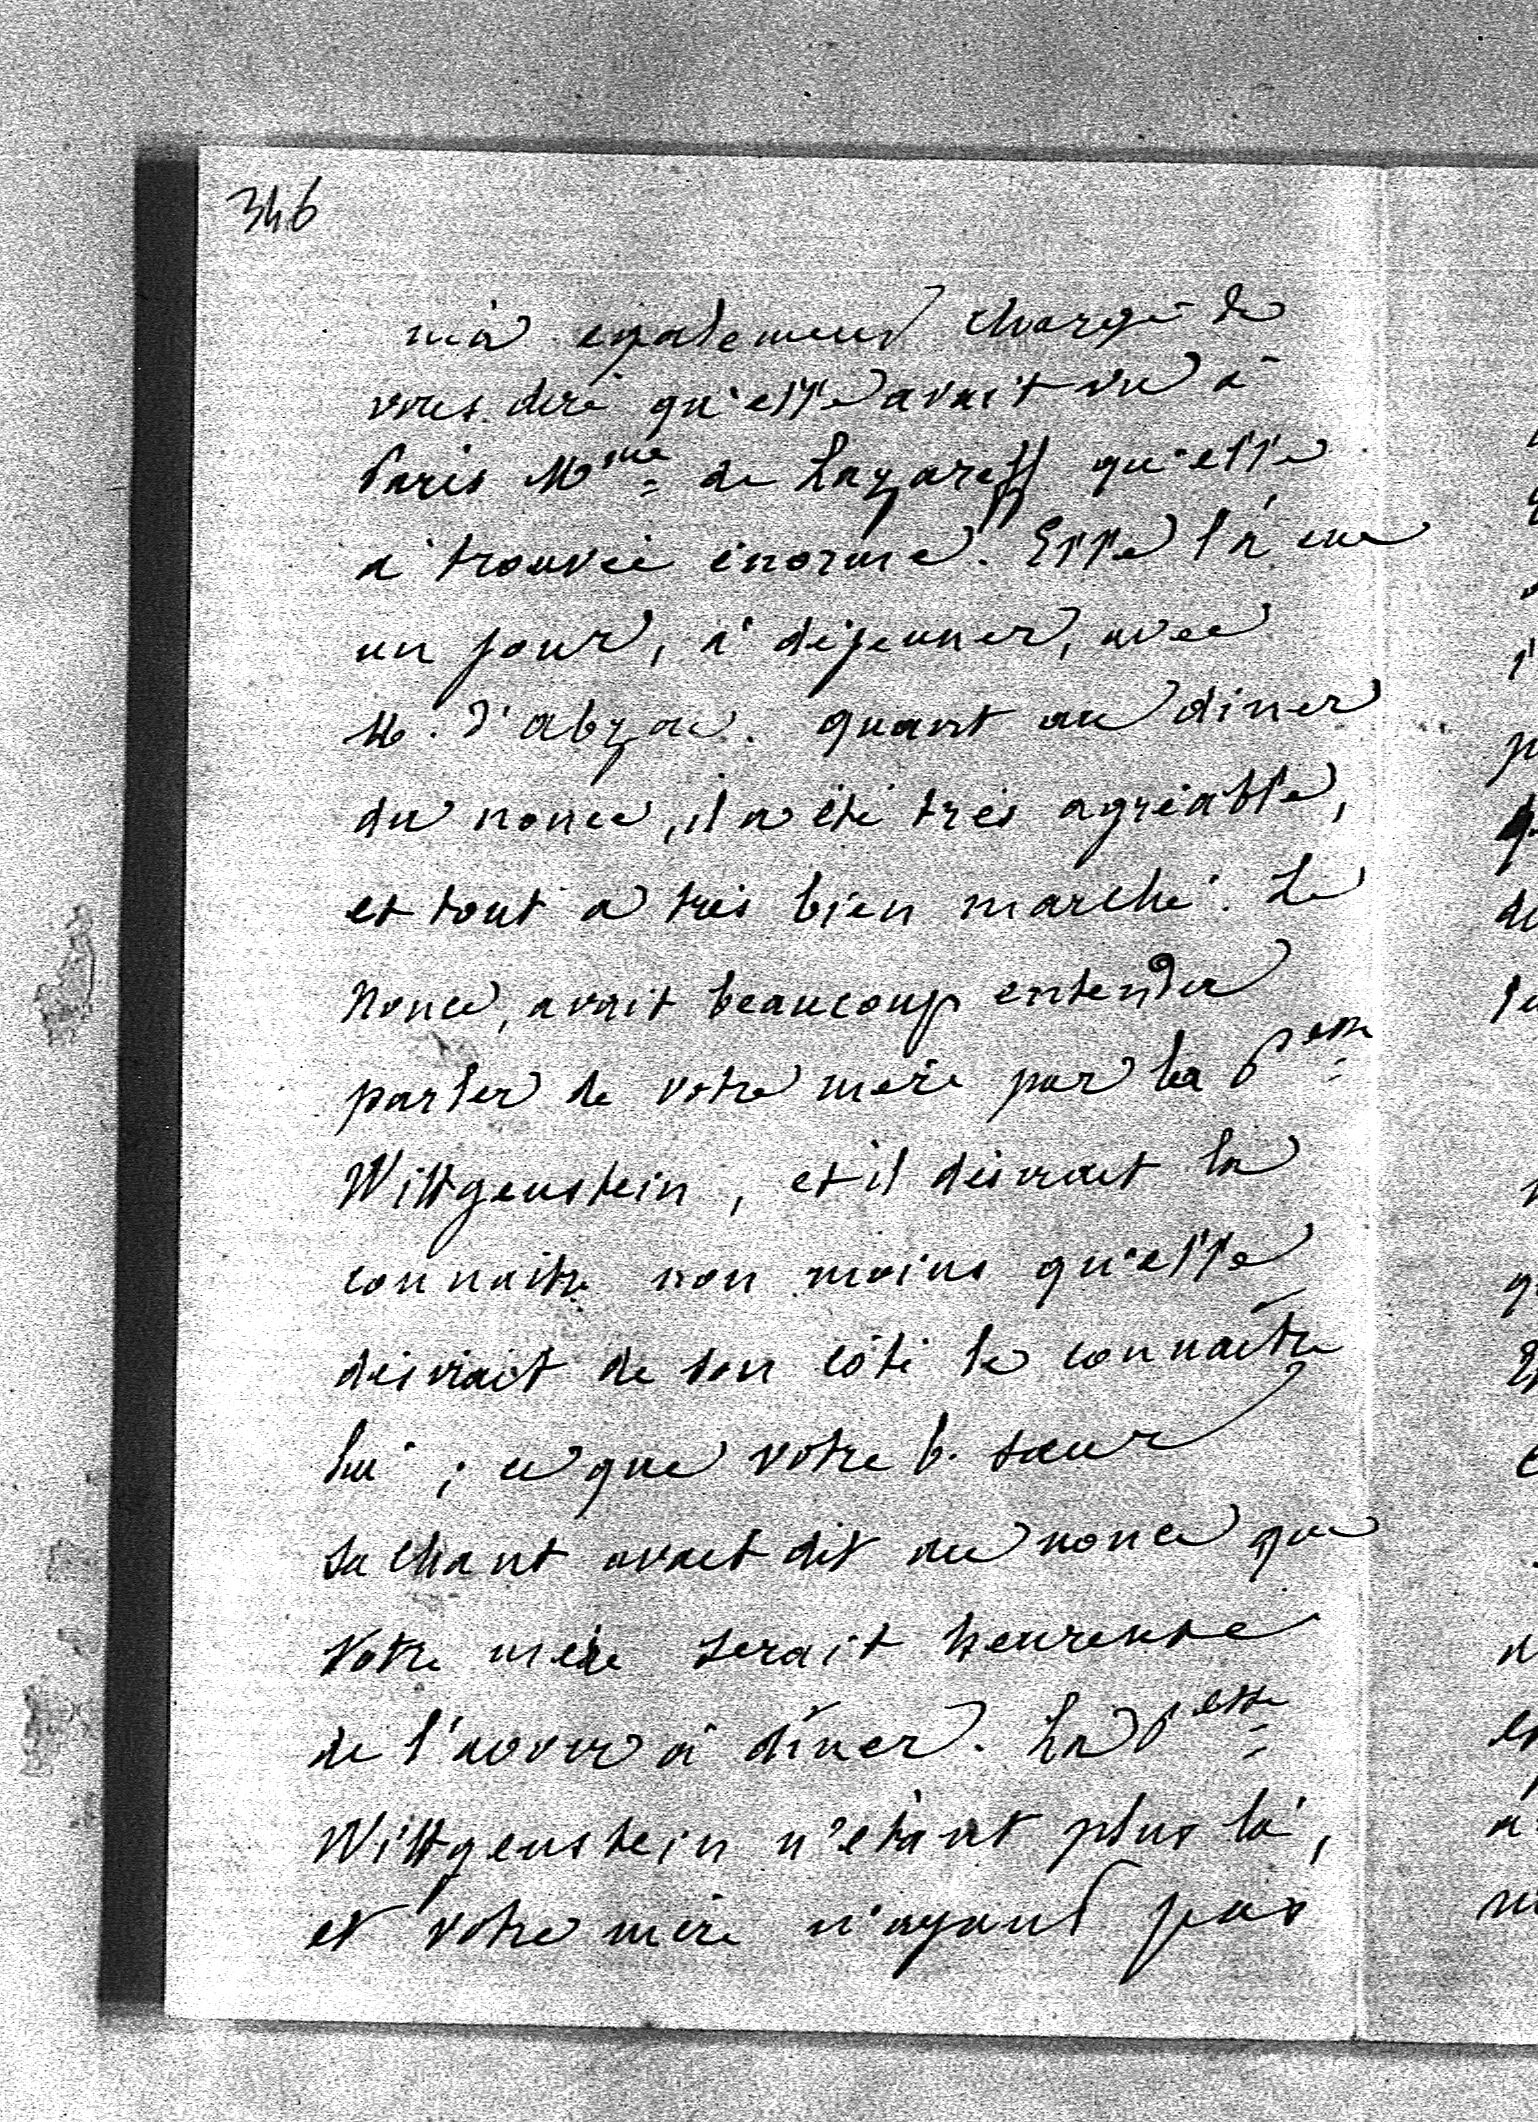 346
m'a également chargé de
vous dire qu'elle avait vu à
Paris Mme de Lazareff qu'elle
a trouvée énorme. Elle l'a eue
un jour, à déjeuner, avec
M. d'Abzac. quant au diner
du nonce, il a été très agréable,
et tout a très bien marché. Le
Nonce, avait beaucoup entendu
parler de votre mère par la Pesse
Wittgenstein, et il désirait la
connaitre non moins qu'elle
désirait de son côté le connaître
lui ; ce que votre b. sœur
sachant avait dit au nonce que
votre mère serait heureuse
de l'avoir à dîner. La Pesse
Wittgenstein n'étant plus là,
et votre mère n'ayant pas